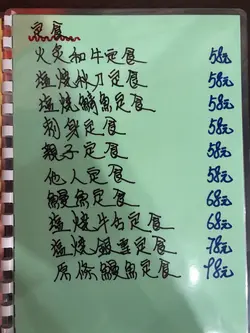 定食
火炙和牛定食 58元
塩燒秋刀定食 58元
塩燒鯖魚定食 58元
刺身定食 58元
親子定食 58元
他人定食 58元
鰻魚定食 68元
塩燒牛舌定食 68元
塩燒銀鱈定食 78元
原條鰻魚定食 98元